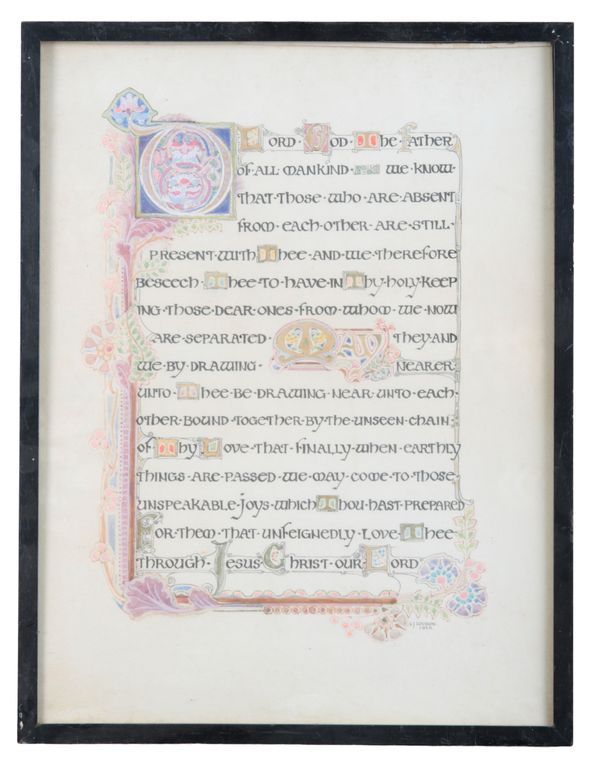 O LORD·GOD·THE FATHER
OF·ALL MANKIND WE·KNOW·
THAT·THOSE·WHO·ARE·ABSENT
FROM·EACH·OTHER·ARE·STILL·
PRESENT·WITH·THEE·AND·WE·THEREFORE
BESEECH·THEE·TO·HAVE·IN·THY·HOLY·KEEP
ING·THOSE·DEAR·ONES·FROM·WHOM·WE·NOW
ARE·SEPARATED MAY THEY·AND
WE·BY·DRAWING· NEARER
UNTO·THEE·BE·DRAWING·NEAR·UNTO·EACH·
OTHER·BOUND·TOGETHER·BY·THE·UNSEEN·CHAIN
OF·THY·LOVE·THAT·FINALLY·WHEN·EARTHLY
THINGS·ARE·PASSED·WE·MAY·COME·TO·THOSE·
UNSPEAKABLE·JOYS·WHICH·THOU·HAST·PREPARED
FOR·THEM·THAT·UNFEIGNEDLY·LOVE·THEE
THROUGH·JESUS·CHRIST·OUR·LORD